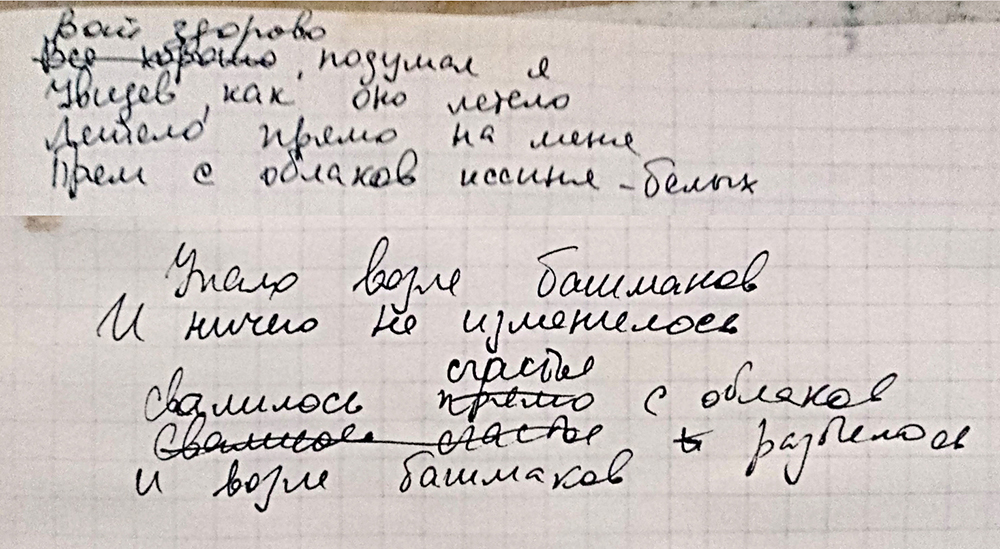 Вот здорово
Все хорошо, подумал я
Увидев, как оно летело
Летело прямо на меня
Прям с облаков иссиня-белых
Упало возле башмаков
И ничего не изменилось
счастье
свалилось прямо с облаков
Свалилось счастье и разбилось
и возле башмаков